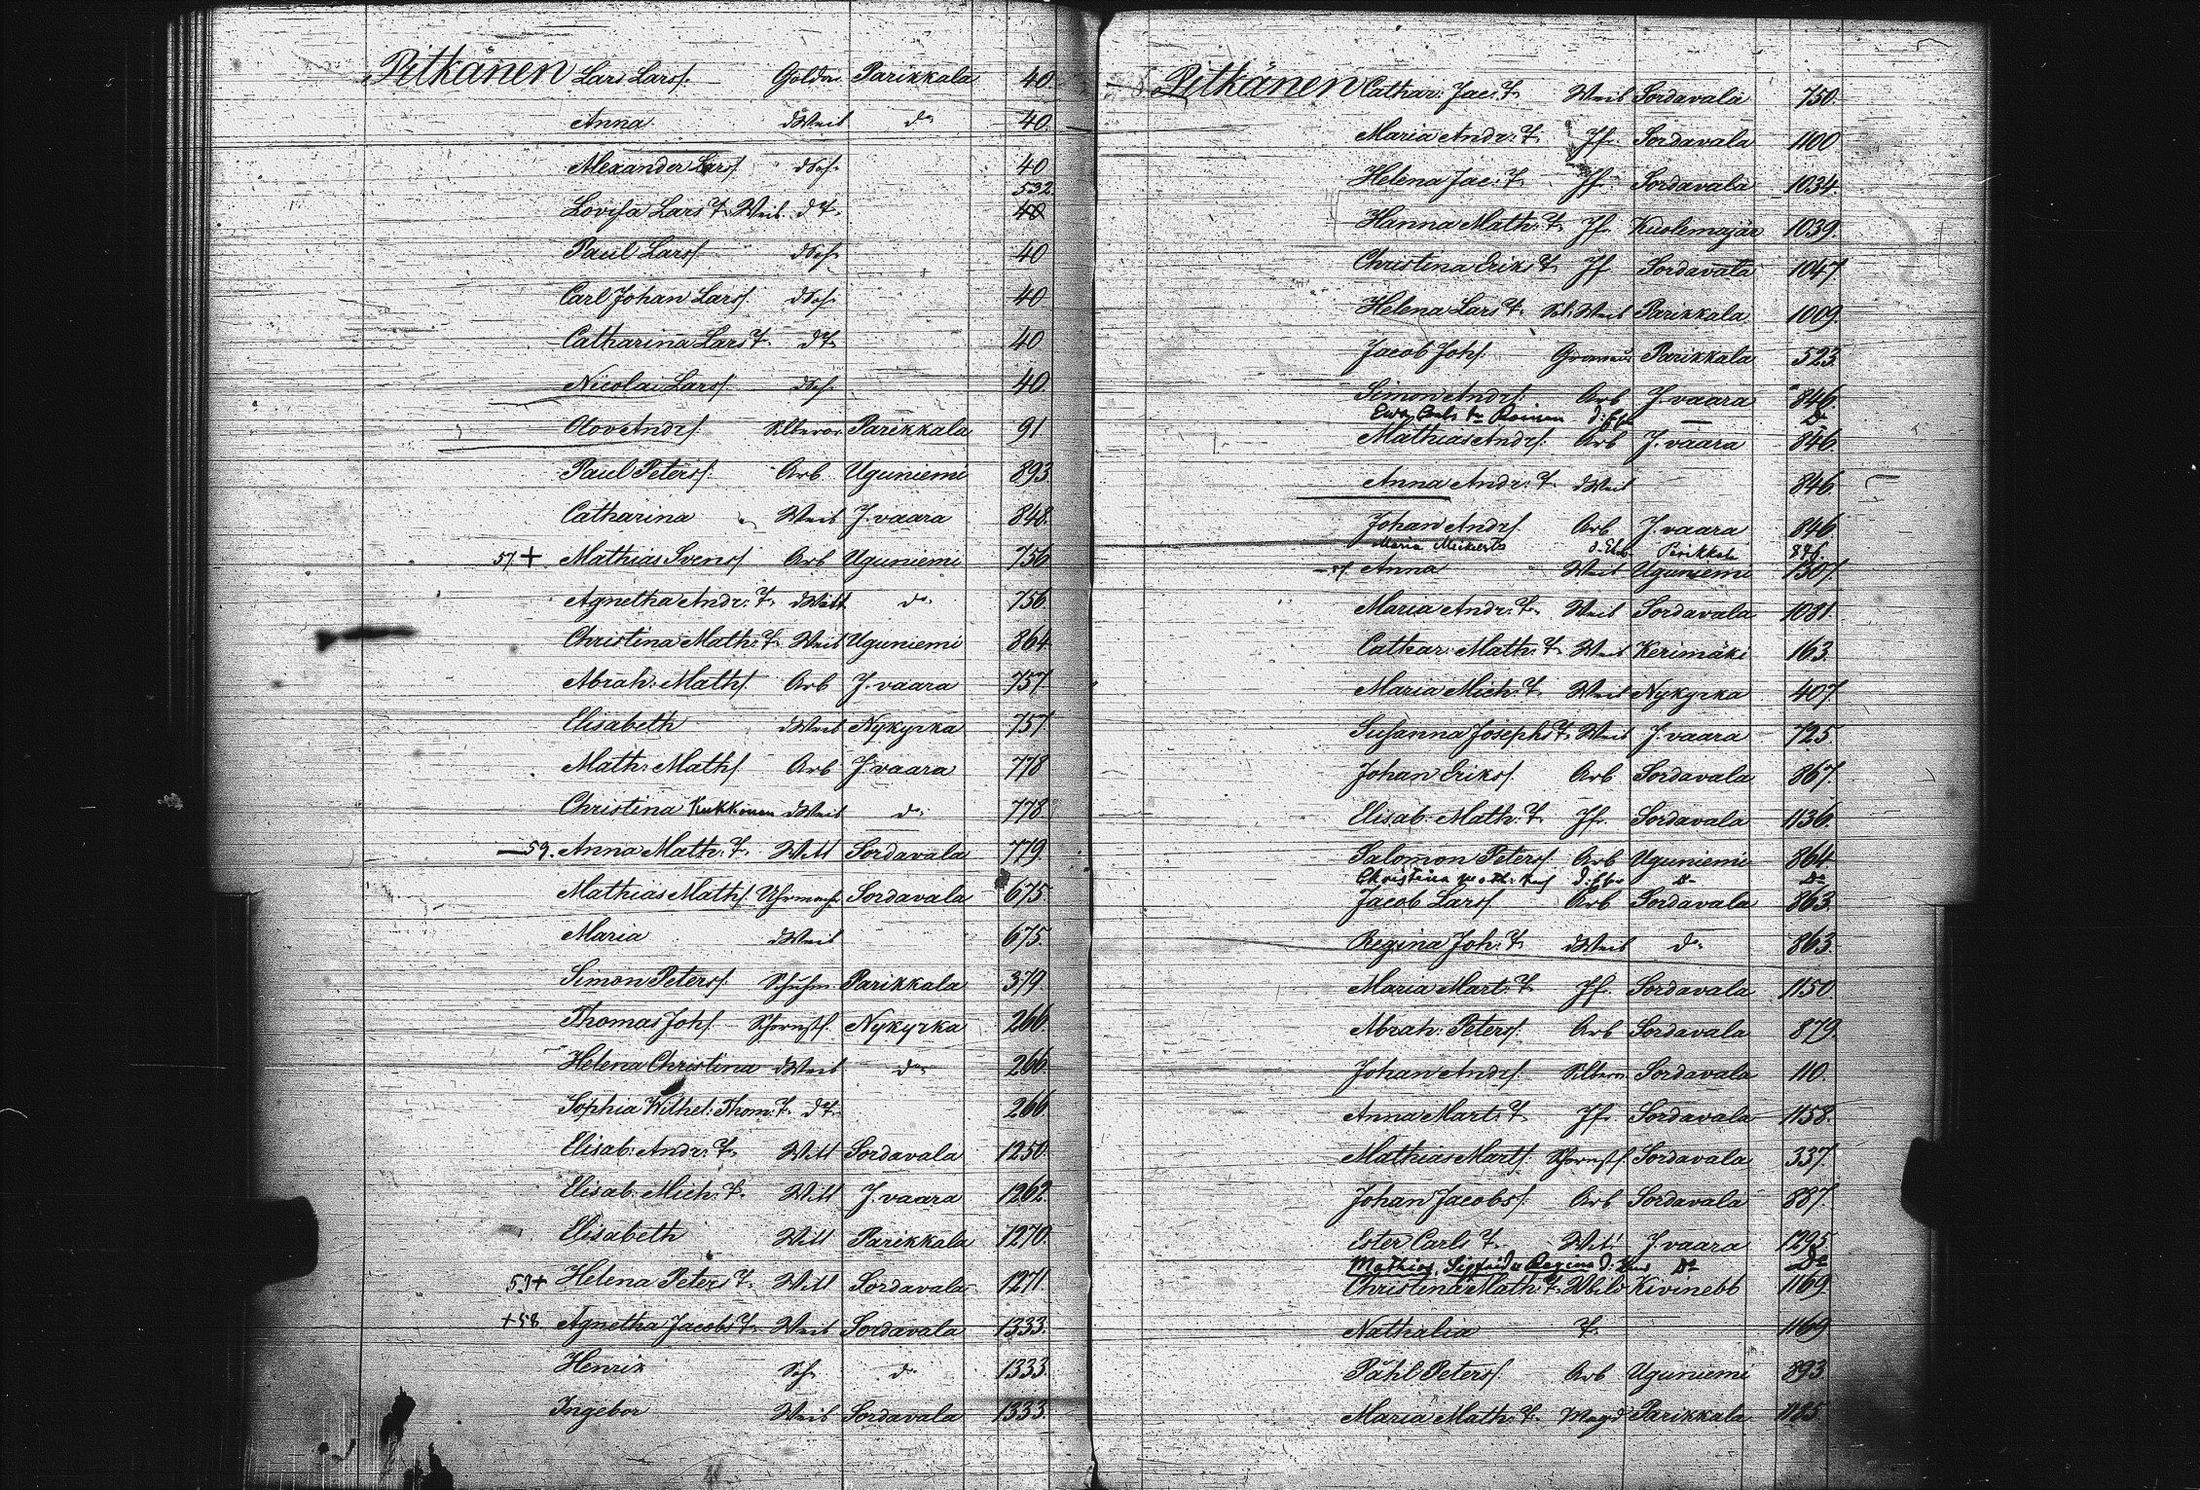 Pitkänen Lars Larsf. Goldar. Parikkala 40
Anna dWeib do 40
Alexander Larsf. dSoh. 40
532
Lovisa Lars T. Weib. dT. 40
Paul Larsf. dSoh. 40
Carl Johan Larsf. dSoh. 40
Catharina Lars T. dT. 40
Nicolai Larsf. dSoh. 40
Olov Andrf. Silberar Parikkala 91
Paul Petersf. Arb Uguniemi 893
Catharina Weib J. vaara 848
57 + Mathias Svensf. Arb Uguniemi 756
Agnetha Andr: T. dWitt do 756
Christina Math: T. Weib Uguniemi 864
Abrah: Mathf. Arb J. vaara 757
Elisabeth dWeib Nykyrka 757
Math: Mathf. Arb J. vaara 778
Christina Kukkonen dWeib do 778
— 59. Anna Math: T. Witt Sordavala 779
Mathias Mathf. Uhrmach. Sordavala 675
Maria dWeib 675
Simon Petersf. Schuhm. Parikkala 379
Thomas Johf. Schornstf. Nykyrka 266
Helena Christina dWeib do 266
Sophia Wilhel: Thom: T. dT. 266
Elisab: Andr: T. Witt Sordavala 1250
Elisab: Mich: T. Witt J. vaara 1262
Elisabeth Witt Parikkala 1270
59 + Helena Peters T. Witt Sordavala 1271
+ 58 Agnetha Jacobs T. Weib Sordavala 1333
Henrik Soh. do 1333
Ingebor Weib Sordavala 1333
Pitkänen Cathar: Jac: T. Weib Sordavala 750
Maria Andr: T. Jfr. Sordavala 1100
Helena Jac: T. Jf. Sordavala 1034
Hanna Math: T. Jf. Kuolemajär 1039
Christina Eriks T. Jf. Sordavala 1047
Helena Lars T. Weib Parikkala 1009
Jacob Johf. Parikkala 523
Simon Andrf. Arb J. vaara 846
Ewa Carls Do
Mathias Andrf. Arb J. vaara 846
Anna Andr: T. dWeib 846
Johan Andrf. Arb J. vaara 846
Maria Parikkala 846
Anna Weib Uguniemi 1307
Maria Andr: T. Weib Sordavala 1081
Cathar: Math: T. Weib Kerimäki 163
Maria Mich: T. Weib Nykyrka 407
Susanna Josephs T. Weib J. vaara 725
Johan Eriksf. Arb Sordavala 867
Elisab: Math: T. Jfr. Sordavala 1136
Salomon Petersf. Arb Uguniemi 864
Christina Do Do
Jacob Larsf. Arb Sordavala 863
Regina Joh: T. dWeib do 863
Maria Mart: T. Jf. Sordavala 1150
Abrah: Petersf. Arb Sordavala 879
Johan Andrf. Silberar Sordavala 110
Anna Mart: T. Jfr. Sordavala 1158
Mathias Martf. Schornstf. Sordavala 337
Johan Jacobsf. Arb Sordavala 887
Ester Carls T. Wit. J. vaara 1295
Mathias, Sigfrid u Regina d: Do Do
Christina Math: T. Weib Kivinebb 1169
Nathalia T. 1169
Påhl Petersf. Arb Uguniemi 893
Maria Math: T. Magd Parikkala 1185